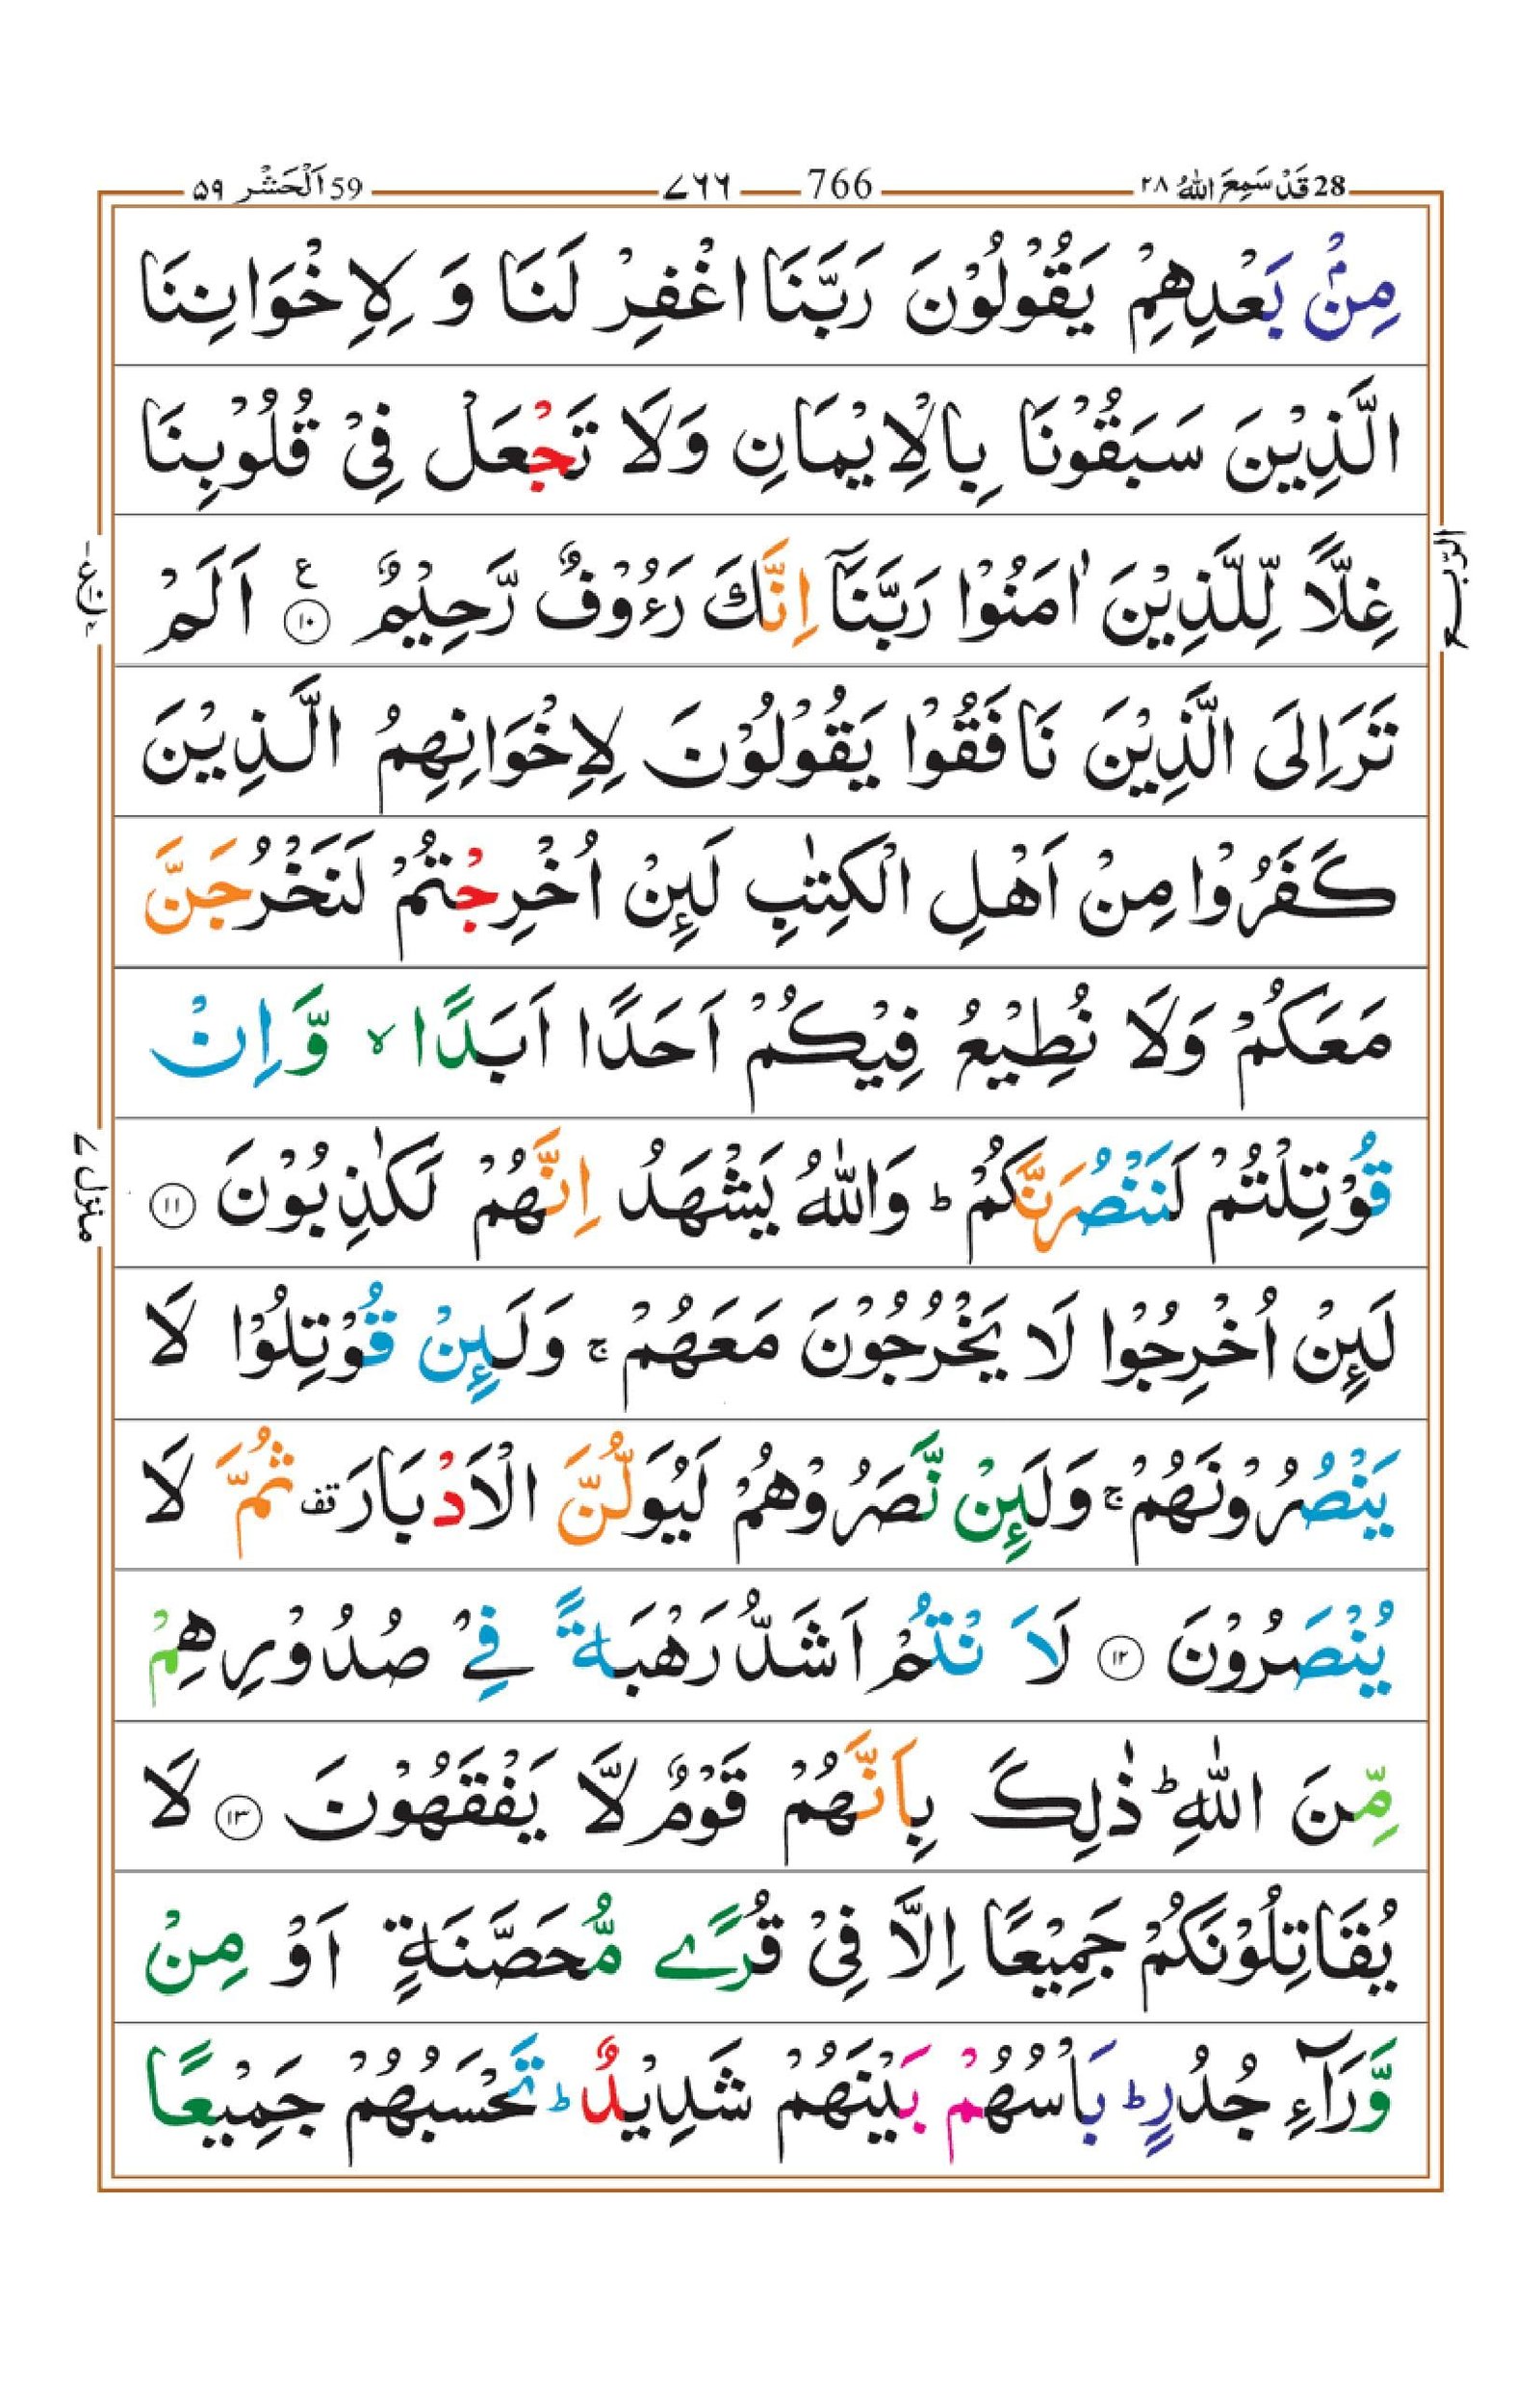 28 قَدْ سَمِعَ اللّٰهُ ٢٨ 766 ٧٦٦ 59 اَلْحَشْر ٥٩
مِنْۢ بَعْدِهِمْ يَقُوْلُوْنَ رَبَّنَا اغْفِرْ لَنَا وَ لِاِخْوَانِنَا
الَّذِيْنَ سَبَقُوْنَا بِالْاِيْمَانِ وَلَا تَجْعَلْ فِيْ قُلُوْبِنَا
غِلًّا لِّلَّذِيْنَ اٰمَنُوْا رَبَّنَاۤ اِنَّكَ رَءُوْفٌ رَّحِيْمٌ ع ١٠ اَلَمْ
الرّبع
تَرَ اِلَى الَّذِيْنَ نَافَقُوْا يَقُوْلُوْنَ لِاِخْوَانِهِمُ الَّذِيْنَ
كَفَرُوْا مِنْ اَهْلِ الْكِتٰبِ لَىِٕنْ اُخْرِجْتُمْ لَنَخْرُجَنَّ
مَعَكُمْ وَلَا نُطِيْعُ فِيْكُمْ اَحَدًا اَبَدًا ۙ وَّاِنْ
قُوْتِلْتُمْ لَنَنْصُرَنَّكُمْ ؕ وَاللّٰهُ يَشْهَدُ اِنَّهُمْ لَكٰذِبُوْنَ ١١
منزل ٧
لَىِٕنْ اُخْرِجُوْا لَا يَخْرُجُوْنَ مَعَهُمْ ۚ وَلَىِٕنْ قُوْتِلُوْا لَا
يَنْصُرُوْنَهُمْ ۚ وَلَىِٕنْ نَّصَرُوْهُمْ لَيُوَلُّنَّ الْاَدْبَارَ قف ثُمَّ لَا
يُنْصَرُوْنَ ١٢ لَا نْتُمْ اَشَدُّ رَهْبَةً فِيْ صُدُوْرِهِمْ
مِّنَ اللّٰهِ ؕ ذٰلِكَ بِاَنَّهُمْ قَوْمٌ لَّا يَفْقَهُوْنَ ١٣ لَا
يُقَاتِلُوْنَكُمْ جَمِيْعًا اِلَّا فِيْ قُرًى مُّحَصَّنَةٍ اَوْ مِنْ
وَّرَآءِ جُدُرٍ ؕ بَاْسُهُمْ بَيْنَهُمْ شَدِيْدٌ ؕ تَحْسَبُهُمْ جَمِيْعًا